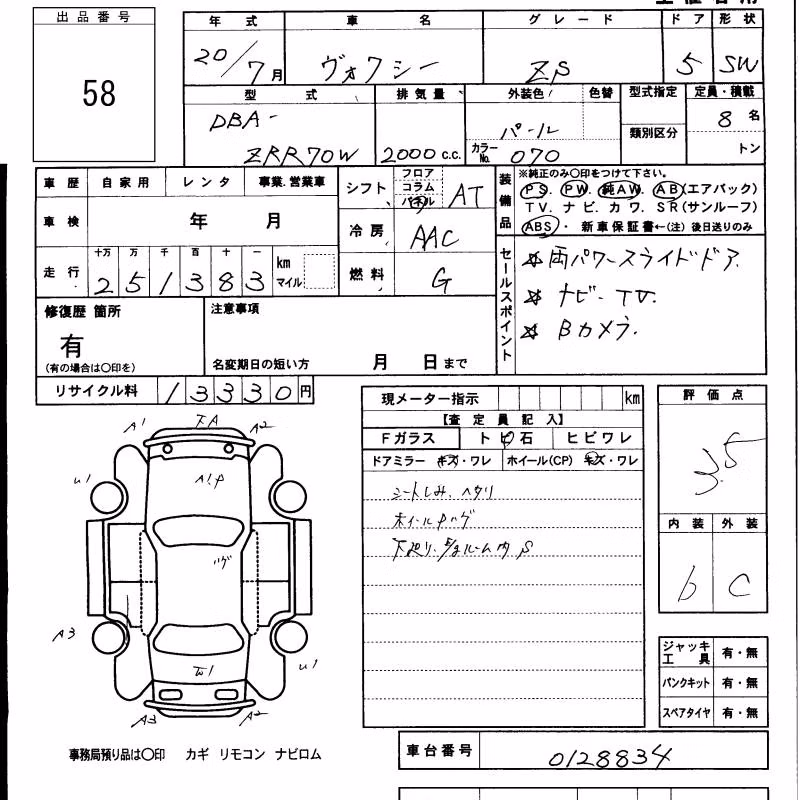 出品番号
58
年式 車名 グレード ドア 形状
20/7月 ヴォクシー ZS 5 SW
型式 排気量 外装色 色替 型式指定 定員・積載
DBA-
ZRR70W 2000 c.c. パール
カラーNo. 070 類別区分 8名
トン
車歴 自家用 レンタ 事業.営業車
車検 年 月
走行 十万 万 千 百 十 一
251383 km マイル
シフト フロア コラム パネル AT
冷房 AAC
燃料 G
装備品
※純正のみ〇印をつけて下さい。
PS. PW. 純AW. AB(エアバック)
TV. ナビ. カワ. SR(サンルーフ)
ABS・ 新車保証書←(注) 後日送りのみ
セールスポイント
☆両パワースライドドア.
☆ ナビ-TV.
☆ Bカメラ.
修復歴 箇所
有
(有の場合は〇印を)
注意事項
名変期日の短い方 月 日まで
リサイクル料 13330円
現メーター指示 km
【査定員記入】
Fガラス トビ石 ヒビワレ
ドアミラー キズ・ワレ ホイール(CP) キズ・ワレ
シートしみ、ヘタリ
ホイールハゲ
評価点
3.5
内装 外装
b C
A1 TA A2
U1
ALP
ハゲ
A3
U1
W1
A3 A2
ジャッキ工具 有・無
パンクキット 有・無
スペアタイヤ 有・無
事務局預り品は〇印 カギ リモコン ナビロム
車台番号 0128834